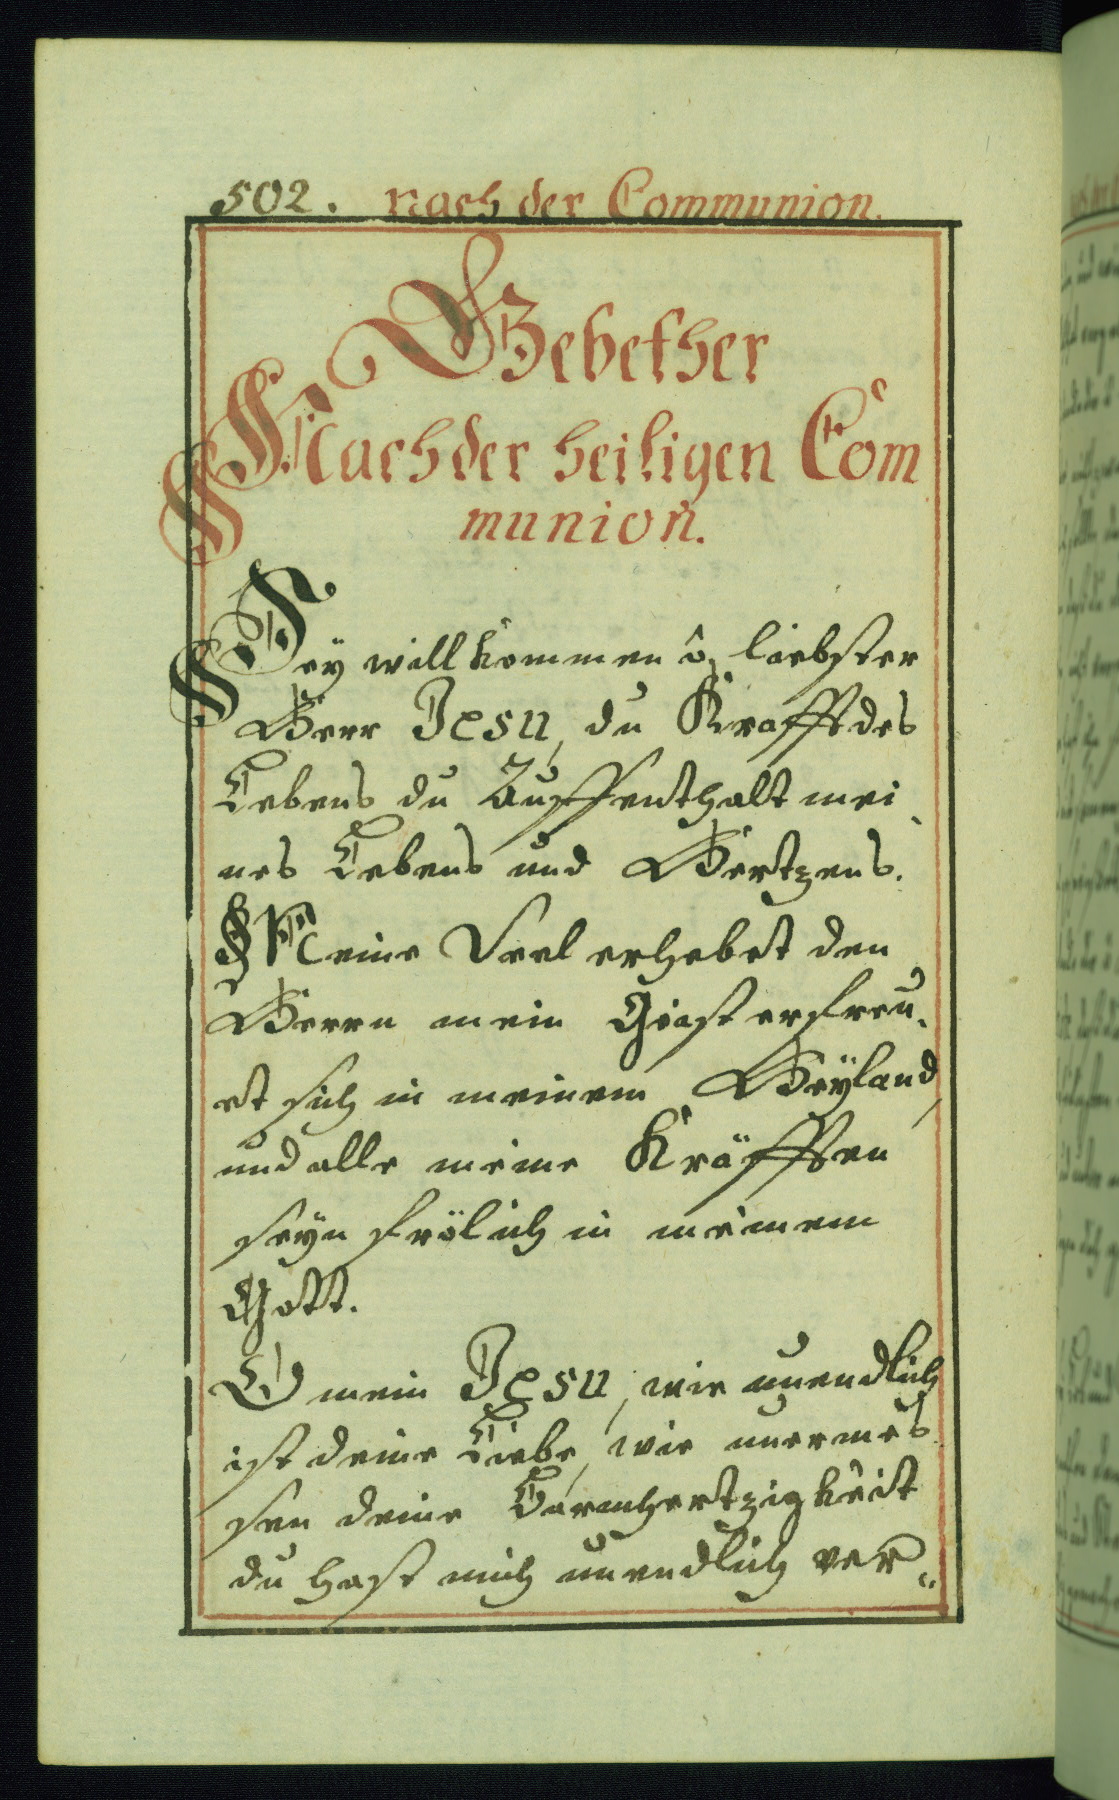 502. nach der Communion.
Gebether
Nach der heiligen Com
munion.
Sey willkommen ô liebster
Herr Jesu, du Krafft des
Lebens du Auffenthalt mei
nes Lebens und Hertzens.
Meine Seel erhebet den
Herrn mein Geist erfreu,
et sich in meinem Heÿland,
und alle meine Kräfften
seyn frölich in meinem
Gott.
O mein Jesu, wie unendlich
ist deine Liebe, wie unermes
sen deine Barmhertzigkeit
du hast mich unendlich ver„